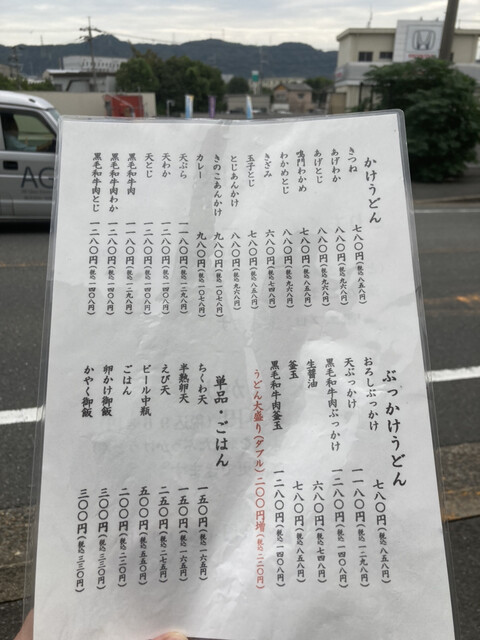 かけうどん
きつね 七八〇円(税込 八五八円)
あげわか 八八〇円(税込 九六八円)
あげとじ 八八〇円(税込 九六八円)
鳴門わかめ 七八〇円(税込 八五八円)
わかめとじ 八八〇円(税込 九六八円)
きざみ 六八〇円(税込 七四八円)
玉子とじ 七八〇円(税込 八五八円)
とじあんかけ 八八〇円(税込 九六八円)
きのこあんかけ 九八〇円(税込 一〇七八円)
カレー 九八〇円(税込 一〇七八円)
天ぷら 一一八〇円(税込 一二九八円)
天わか 一二八〇円(税込 一四〇八円)
天とじ 一二八〇円(税込 一四〇八円)
黒毛和牛肉 一一八〇円(税込 一二九八円)
黒毛和牛肉わか 一二八〇円(税込 一四〇八円)
黒毛和牛肉とじ 一二八〇円(税込 一四〇八円)
ぶっかけうどん
おろしぶっかけ 七八〇円(税込 八五八円)
天ぶっかけ 一一八〇円(税込 一二九八円)
黒毛和牛肉ぶっかけ 一二八〇円(税込 一四〇八円)
生醤油 六八〇円(税込 七四八円)
釜玉 七八〇円(税込 八五八円)
黒毛和牛肉釜玉 一二八〇円(税込 一四〇八円)
うどん大盛り(ダブル)二〇〇円増(税込 二二〇円)
単品・ごはん
ちくわ天 一五〇円(税込 一六五円)
半熟卵天 一五〇円(税込 一六五円)
えび天 二五〇円(税込 二七五円)
ビール中瓶 五〇〇円(税込 五五〇円)
ごはん 二〇〇円(税込 二二〇円)
卵かけ御飯 三〇〇円(税込 三三〇円)
かやく御飯 三〇〇円(税込 三三〇円)
AG